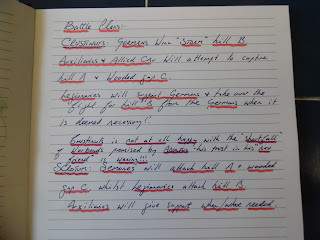 Battle Plans:-
CRUSTINUS: GERMANS Will "STORM" hill B
Auxiliaries & Allied Cav Will attempt to capture
hill A & Wooded gap C.
Legionaries will Germans & take over the
fight for hill B from the Germans when it
is deemed necessary!
Crusticus is not at all happy with the "shortfall"
of Warbands promised by his trust in his "new
friend" is waning!!!
Legionaries will attack hill A & wooded
gap C whilst legionaries attack hill B.
Auxiliaries will give support when/where needed